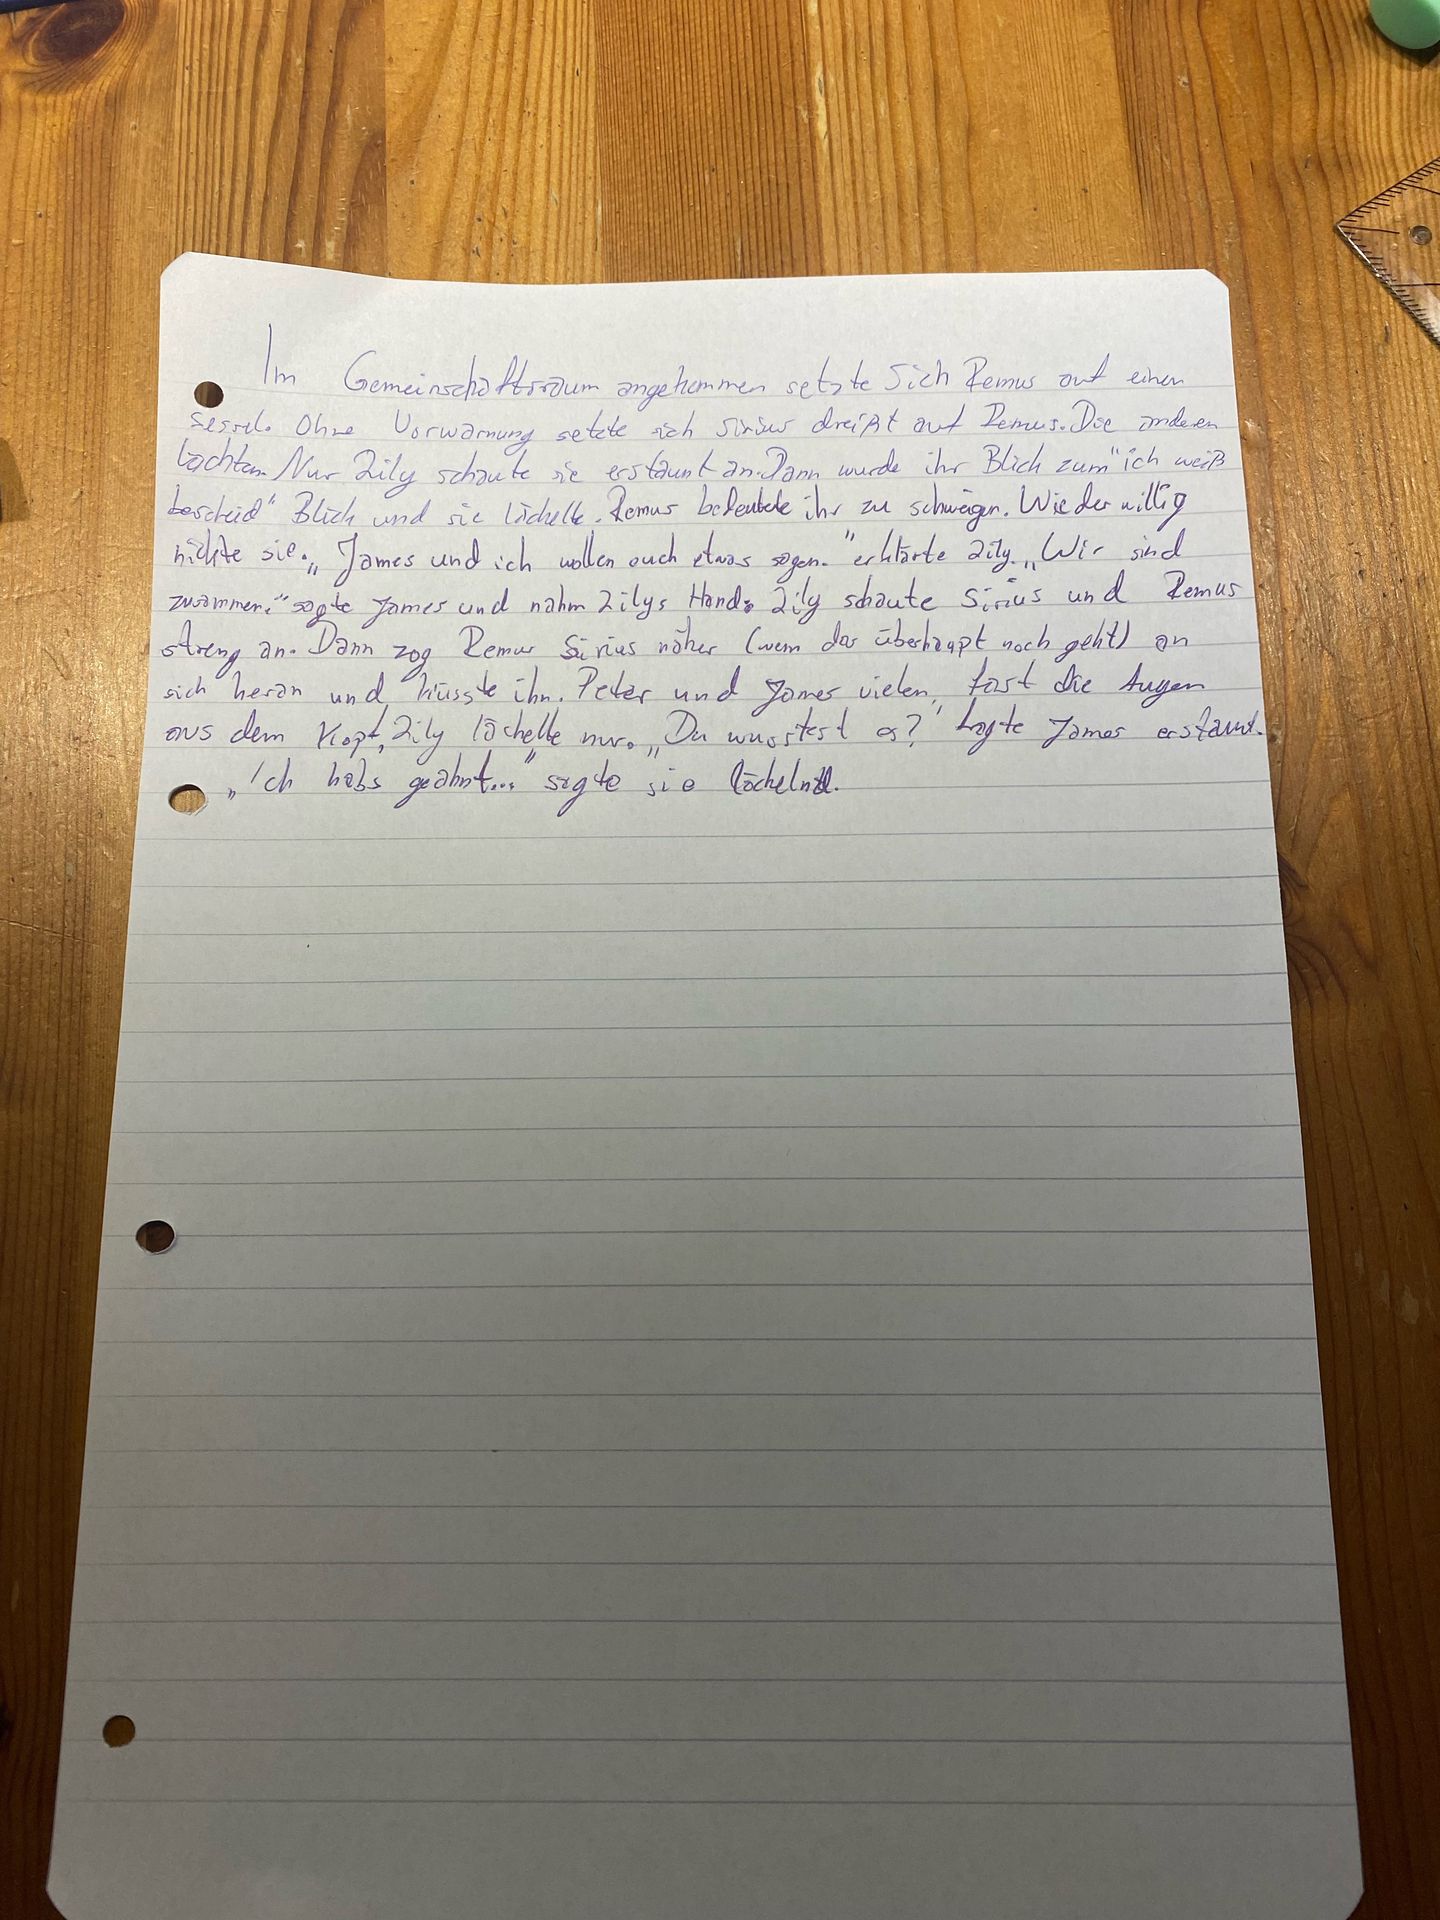 Im Gemeinschaftsraum angekommen setzte Sich Remus auf einen
sessel. Ohne Vorwarnung setzte sich Sirius dreißt auf Remus. Die anderen
lachten. Nur Lily schaute sie erstaunt an. Dann wurde ihr Blick zum "ich weiß
bescheid" Blick und sie lächelte. Remus bedeutete ihr zu schweigen. Wiederwillig
nickte sie. „James und ich wollen euch etwas sagen." erklärte Lily. „Wir sind
zusammen." sagte James und nahm Lilys Hand. Lily schaute Sirius und Remus
streng an. Dann zog Remus Sirius näher (wenn das überhaupt noch geht) an
sich heran und küsste ihn. Peter und James vielen fast die Augen
aus dem Kopf, Lily lächelte nur. „Du wusstest es?" fragte James erstaunt.
„Ich habs geahnt..." sagte sie lächelnd.